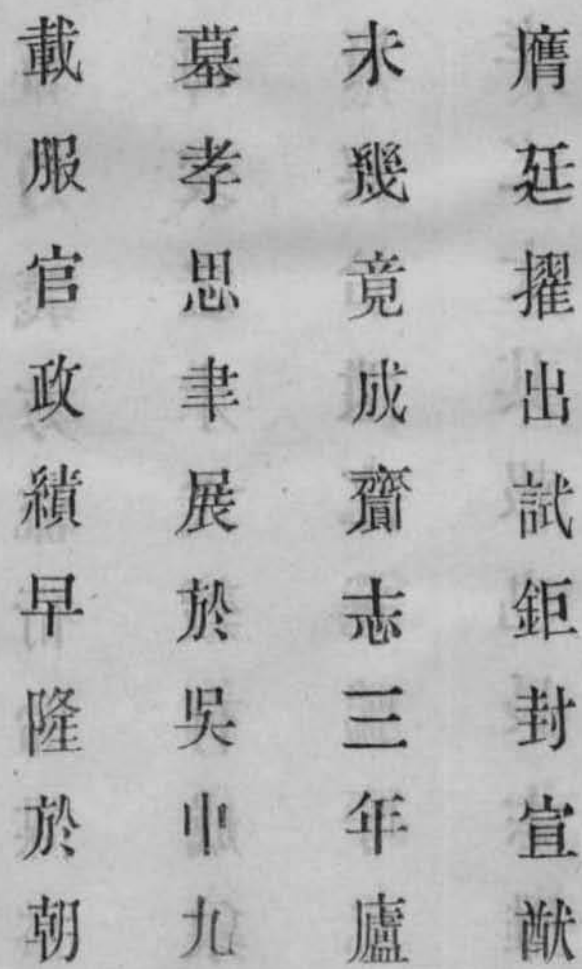 膺廷擢出試鉅封宣猷
未幾竟成齎志三年廬
墓孝思聿展於吳中九
載服官政績早隆於朝